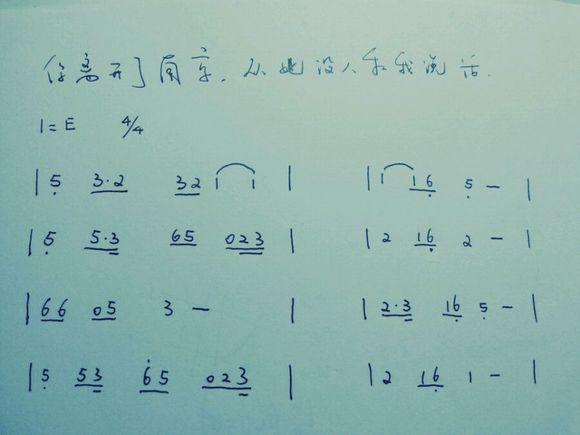 你离开了南京，从此没人和我说话.
1=E 4/4
| 5̣ 3·2 32 1 1 | | 1 16̣ 5̣ – |
| 5̣ 5·3 65 023 | | 2 16̣ 2 – |
| 66 05 3 – | | 2·3 16̣ 5̣ – |
| 5̣ 53 6̇5 023 | | 2 16̣ 1 – |